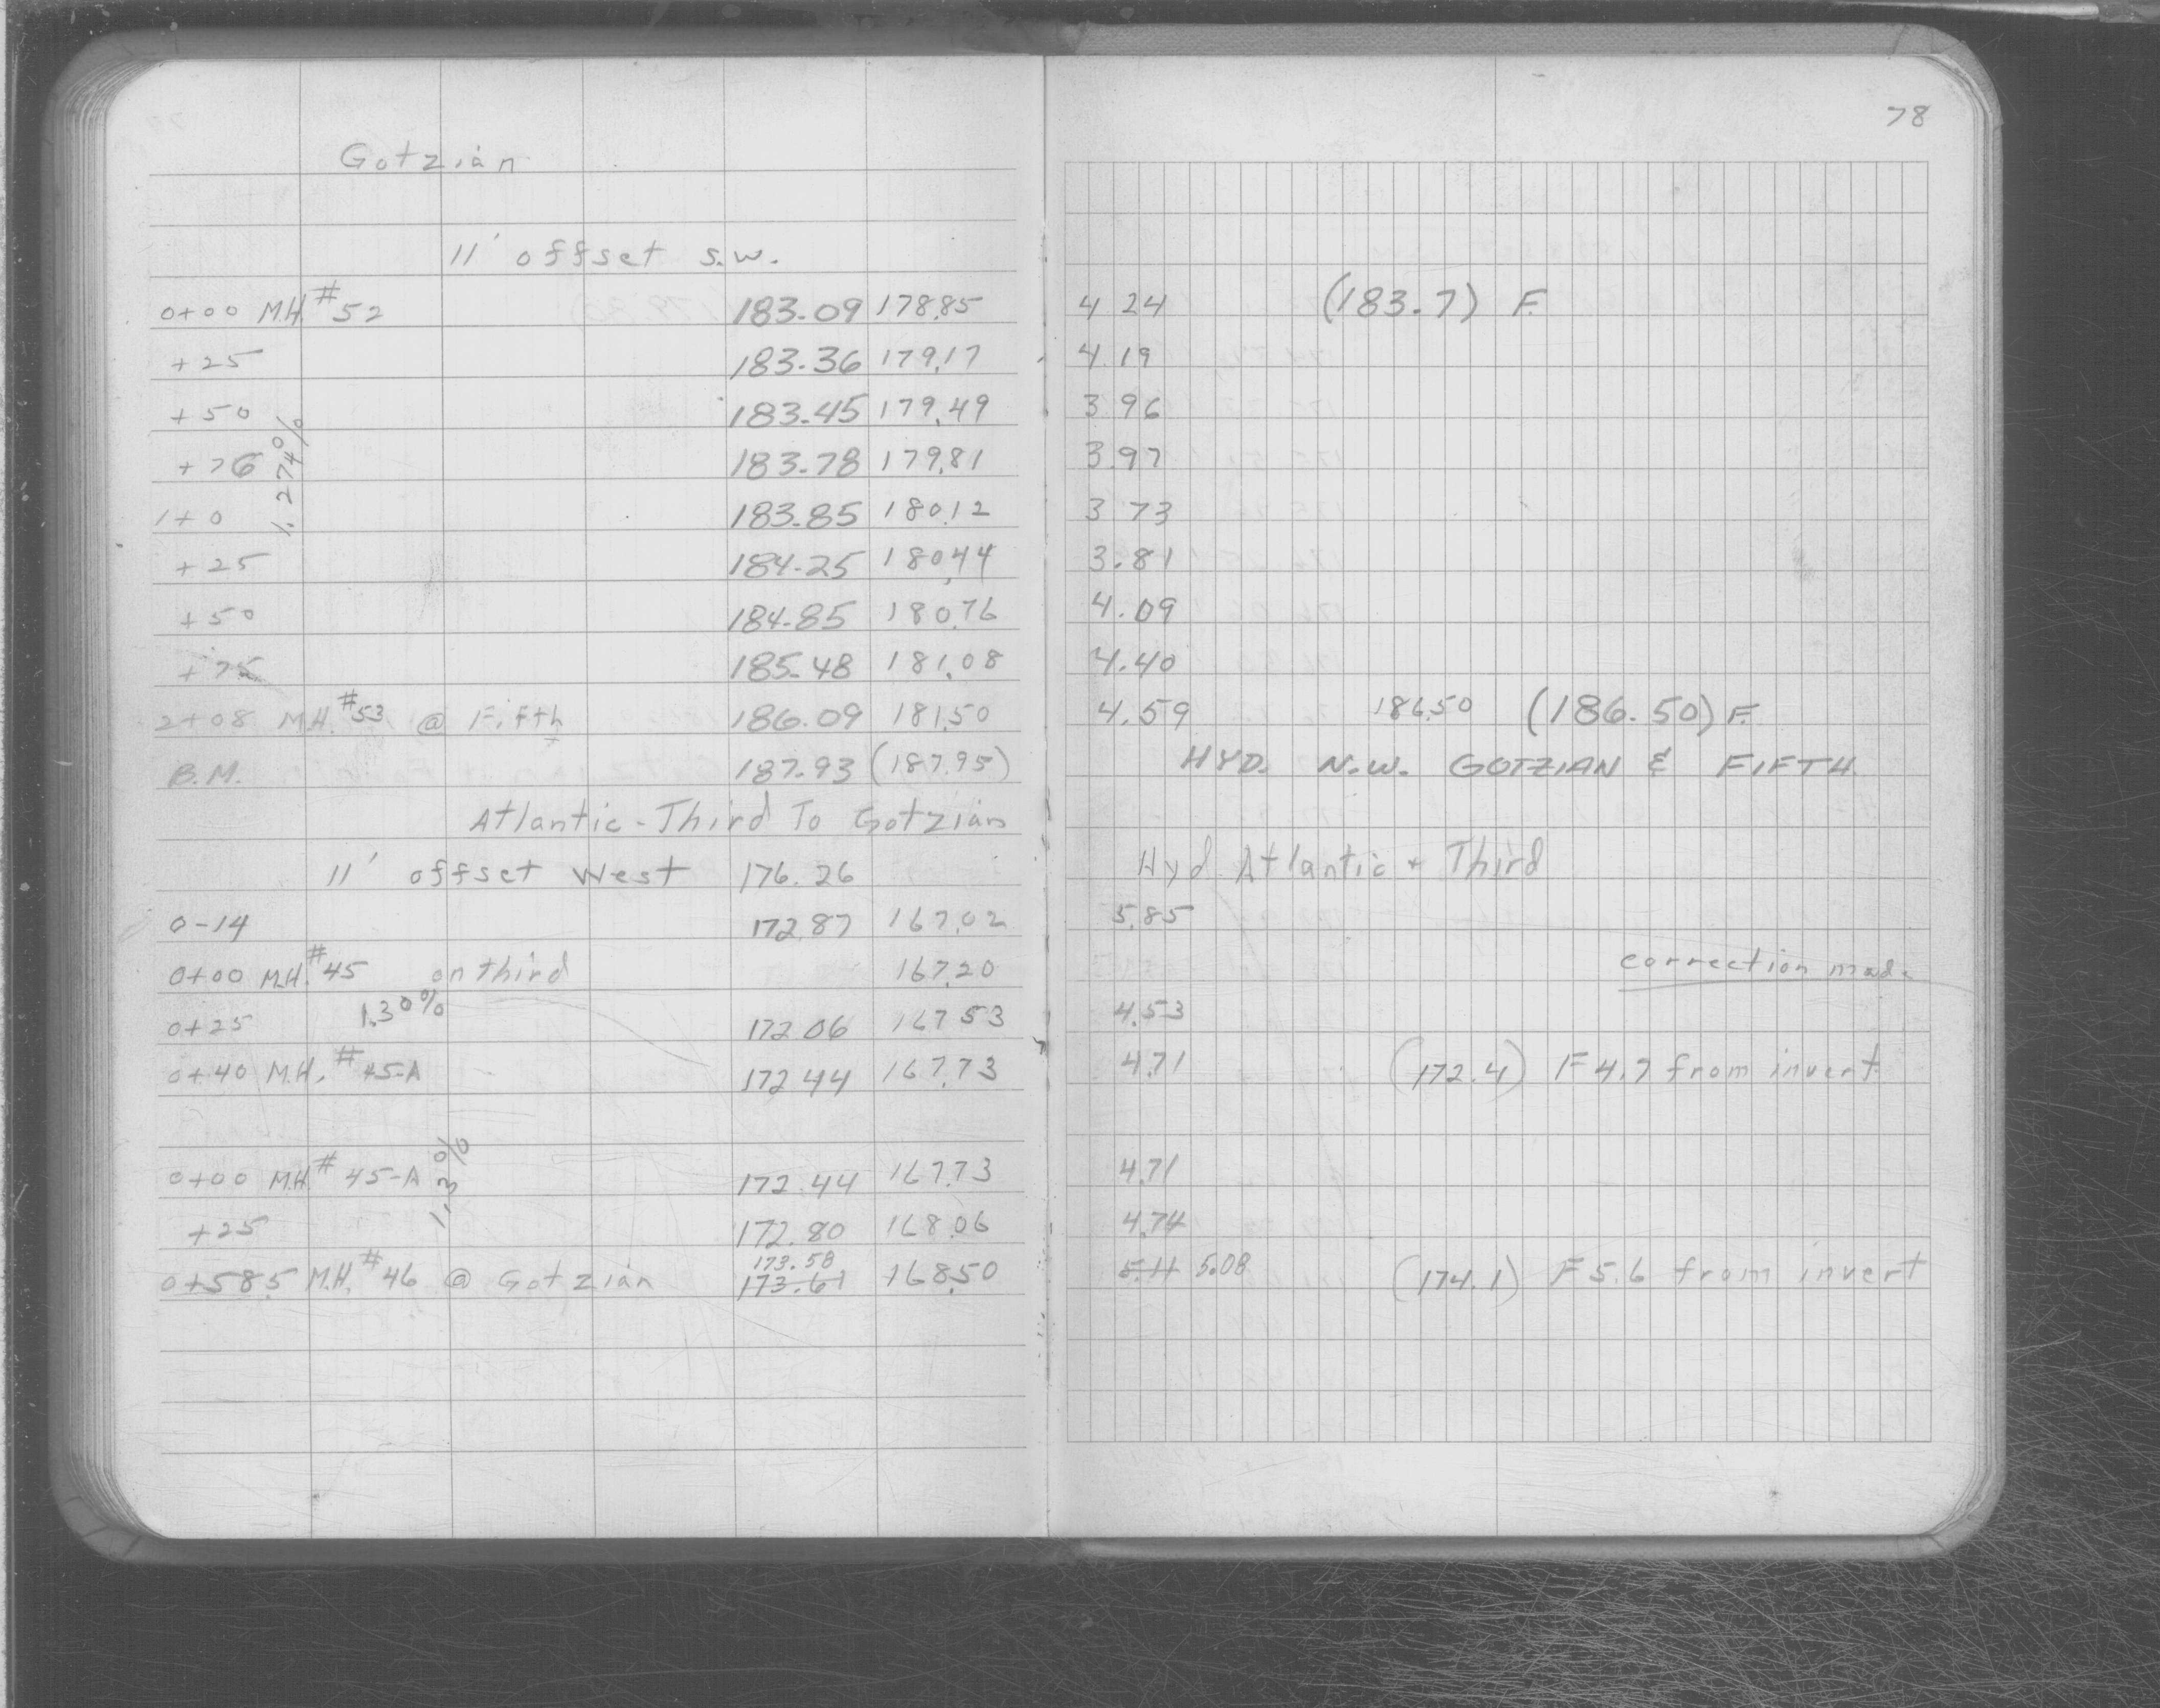 78
Gotzian
11' offset s.w.
0+00 M.H. #52 183.09 178.85 4 24 (183.7) F.
+25 183.36 179.17 4.19
+50 183.45 179.49 3 96
1.274%
+76 183.78 179.81 3.97
1+0 183.85 180.12 3 73
+25 184.25 180.44 3.81
+50 184.85 180.76 4.09
+75 185.48 181.08 4.40
2+08 M.H. #53 @ Fifth 186.09 181.50 4.59 186.50 (186.50) F.
B.M. 187.93 (187.95) HYD. N.W. GOTZIAN & FIFTH
Atlantic - Third To Gotzian
11' offset West 176.26 Hyd. Atlantic + Third
0-14 172.87 167.02 5.85
0+00 M.H. #45 on third 167.20 correction made
1.30%
0+25 172.06 167.53 4.53
0+40 M.H. #45-A 172.44 167.73 4.71 (172.4) F 4.7 from invert
0+00 M.H. # 45-A 172.44 167.73 4.71
1.3%
+25 172.80 168.06 4.74
173.58
0+58.5 M.H. #46 @ Gotzian 173.61 168.50 5.11 5.08 (174.1) F 5.6 from invert